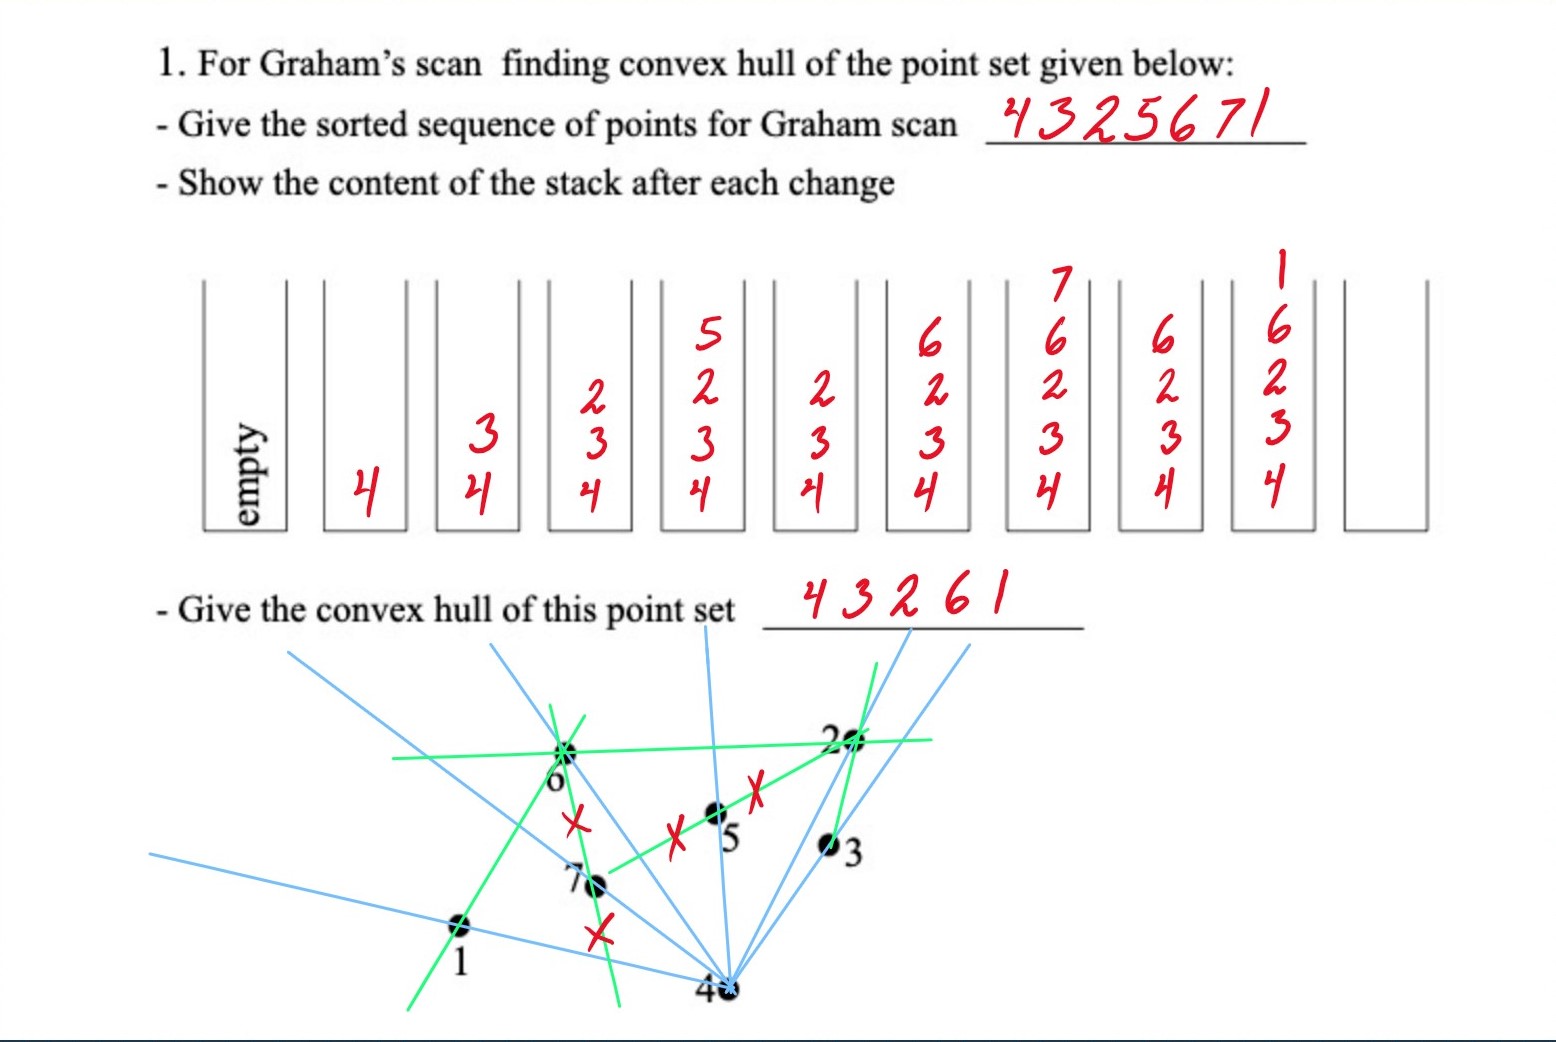 1. For Graham's scan finding convex hull of the point set given below:
- Give the sorted sequence of points for Graham scan 4 3 2 5 6 7 1
- Show the content of the stack after each change
empty
4
3
4
2
3
4
5
2
3
4
2
3
4
6
2
3
4
7
6
2
3
4
6
2
3
4
1
6
2
3
4
- Give the convex hull of this point set 4 3 2 6 1
2
6
5
3
7
1
4